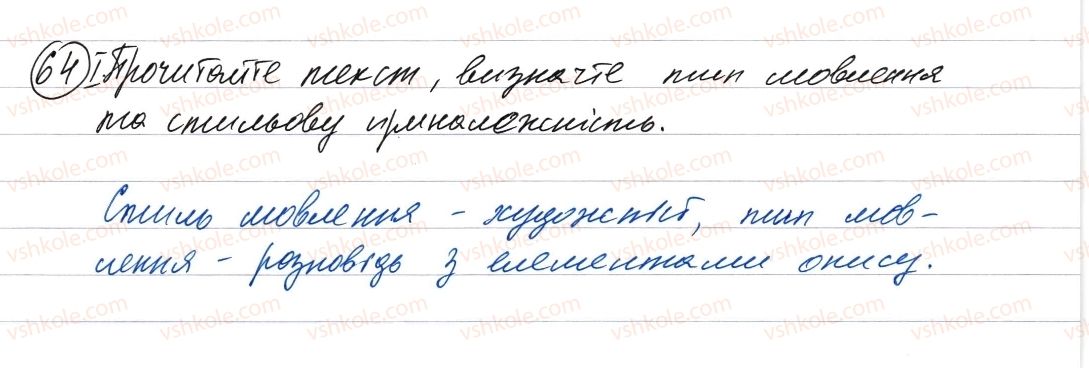 64 I. Прочитайте текст, визначте тип мовлення
та стильову приналежність.
Стиль мовлення - художній, тип мов-
лення - розповідь з елементами опису.